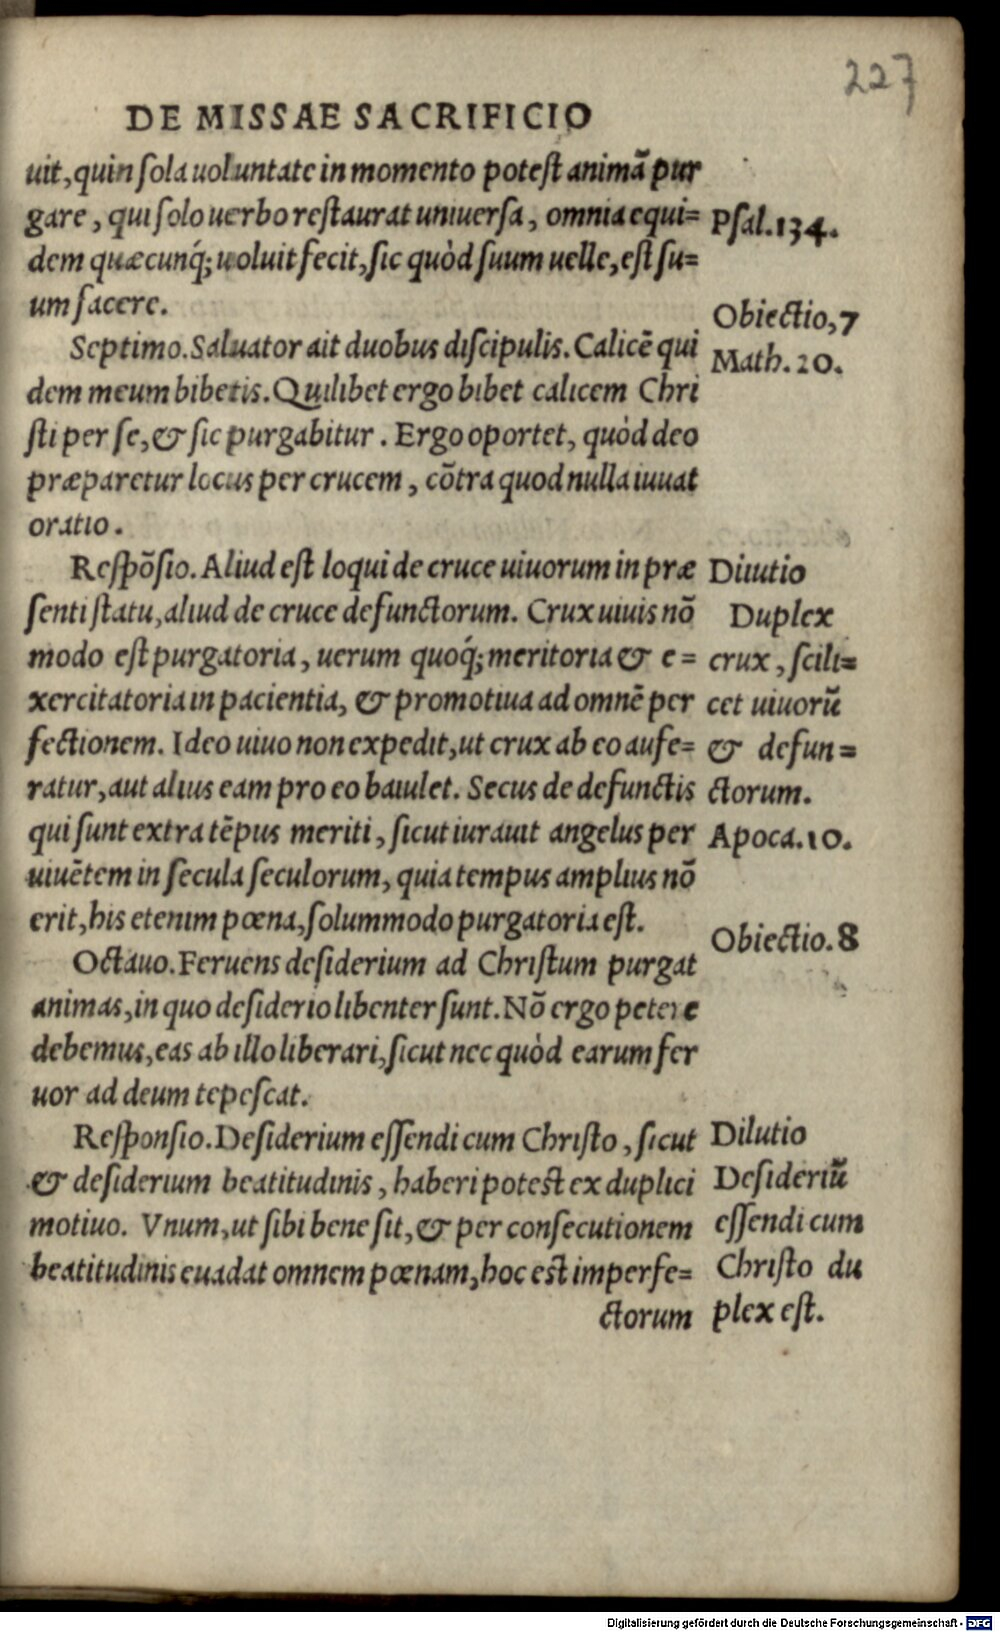 227
DE MISSAE SACRIFICIO
uit, quin sola uoluntate in momento potest animā pur
gare, qui solo uerbo restaurat uniuersa, omnia equi=
dem quæcunq́; uoluit fecit, sic quòd suum uelle, est su=
um facere.
Septimo. Saluator ait duobus discipulis. Calicē qui
dem meum bibetis. Quilibet ergo bibet calicem Chri
sti per se, & sic purgabitur. Ergo oportet, quòd deo
præparetur locus per crucem, cōtra quod nulla iuuat
oratio.
Respōsio. Aliud est loqui de cruce uiuorum in præ
senti statu, aliud de cruce defunctorum. Crux uiuis nō
modo est purgatoria, uerum quoq́; meritoria & e=
xercitatoria in pacientia, & promotiua ad omnē per
fectionem. Ideo uiuo non expedit, ut crux ab eo aufe=
ratur, aut alius eam pro eo baiulet. Secus de defunctis
qui sunt extra tēpus meriti, sicut iurauit angelus per
uiuētem in secula seculorum, quia tempus amplius nō
erit, his etenim pœna, solummodo purgatoria est.
Octauo. Feruens desiderium ad Christum purgat
animas, in quo desiderio libenter sunt. Nō ergo petere
debemus, eas ab illo liberari, sicut nec quòd earum fer
uor ad deum tepescat.
Responsio. Desiderium essendi cum Christo, sicut
& desiderium beatitudinis, haberi potest ex duplici
motiuo. Vnum, ut sibi bene sit, & per consecutionem
beatitudinis euadat omnem pœnam, hoc est imperfe=
ctorum
Psal. 134.
Obiectio, 7
Math. 20.
Diiutio
Duplex
crux, scili=
cet uiuorū
& defun=
ctorum.
Apoca. 10.
Obiectio. 8
Dilutio
Desideriū
essendi cum
Christo du
plex est.
Digitalisierung gefördert durch die Deutsche Forschungsgemeinschaft - DFG